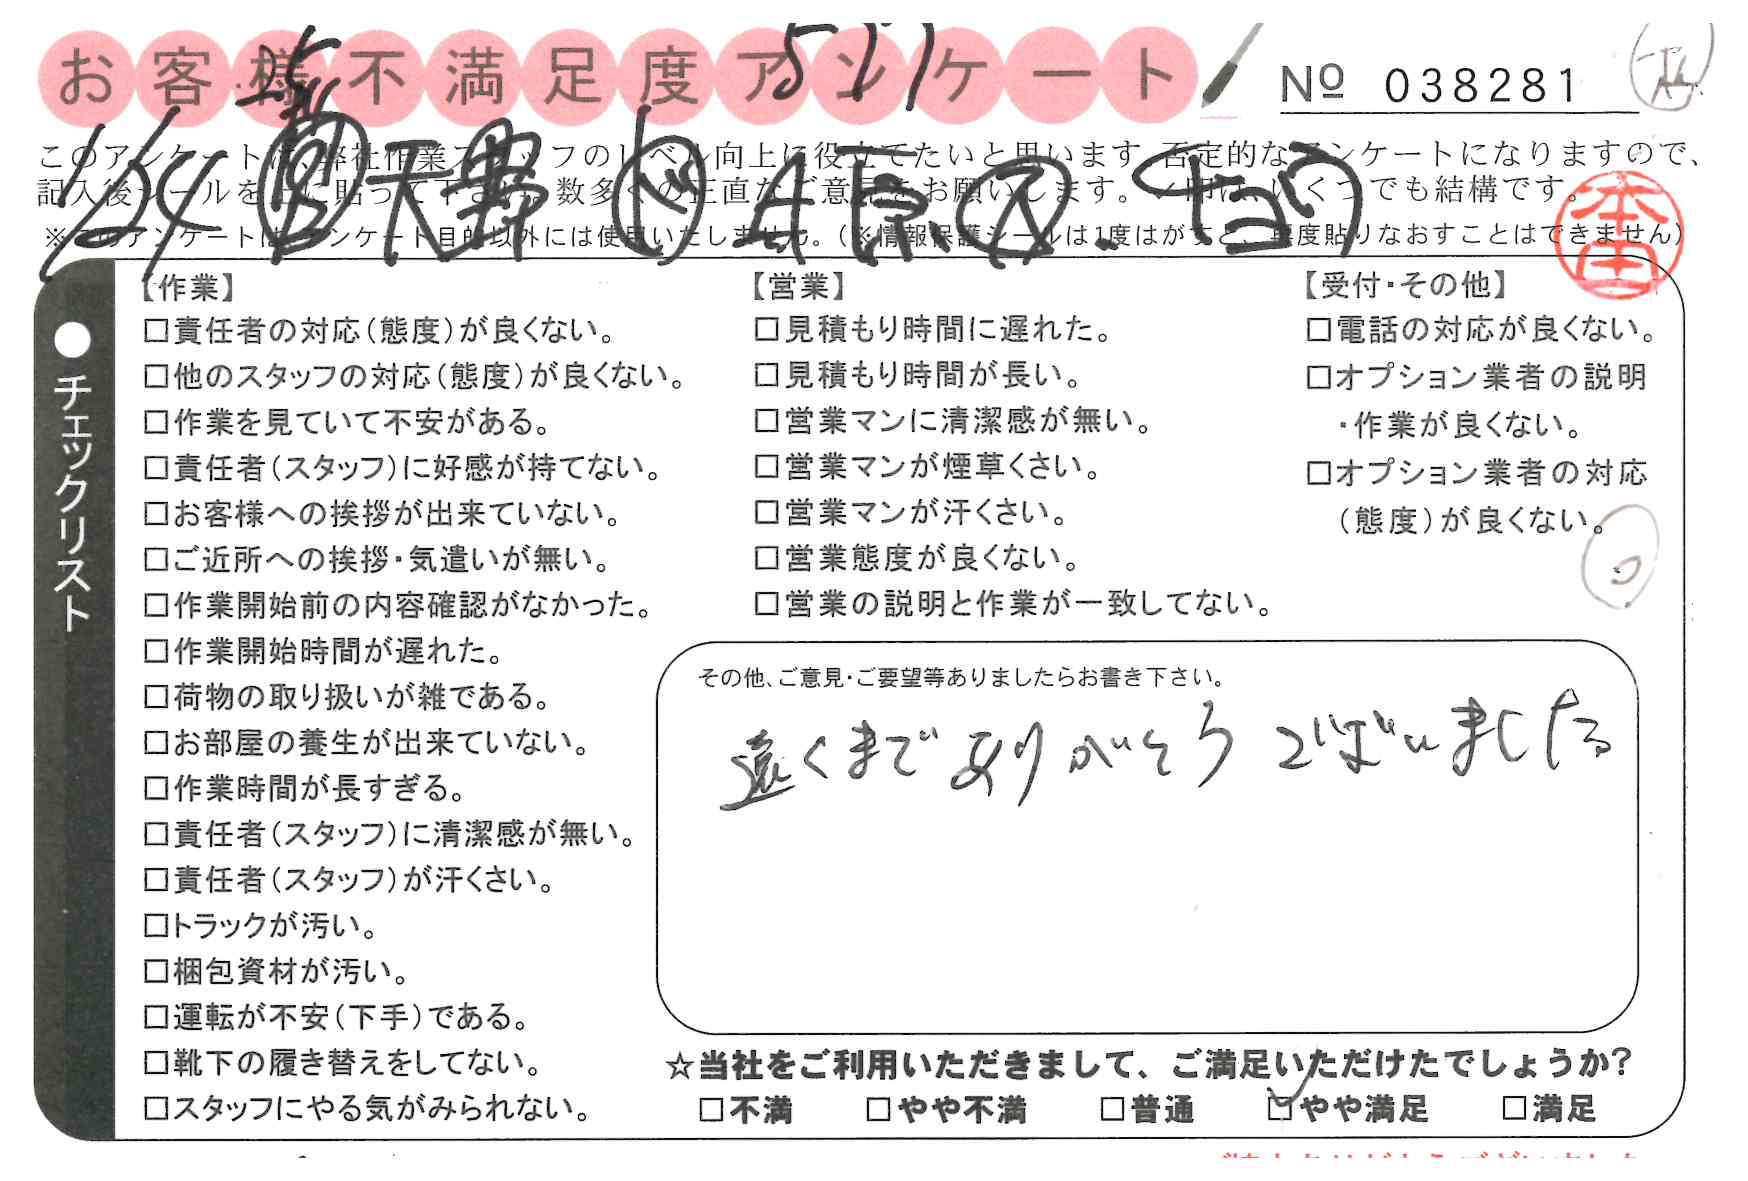 お客様不満足度アンケート
№ 038281
このアンケートは、弊社作業スタッフのレベル向上に役立てたいと思います。否定的なアンケートになりますので、
記入後シールを上に貼って下さい。数多くの正直なご意見をお願いします。✓印は、いくつでも結構です。
※このアンケートは、アンケート目的以外には使用いたしません。(※情報保護シールは1度はがすと、再度貼りなおすことはできません)
天野
本田
●チェックリスト
【作業】
□責任者の対応(態度)が良くない。
□他のスタッフの対応(態度)が良くない。
□作業を見ていて不安がある。
□責任者(スタッフ)に好感が持てない。
□お客様への挨拶が出来ていない。
□ご近所への挨拶・気遣いが無い。
□作業開始前の内容確認がなかった。
□作業開始時間が遅れた。
□荷物の取り扱いが雑である。
□お部屋の養生が出来ていない。
□作業時間が長すぎる。
□責任者(スタッフ)に清潔感が無い。
□責任者(スタッフ)が汗くさい。
□トラックが汚い。
□梱包資材が汚い。
□運転が不安(下手)である。
□靴下の履き替えをしてない。
□スタッフにやる気がみられない。
【営業】
□見積もり時間に遅れた。
□見積もり時間が長い。
□営業マンに清潔感が無い。
□営業マンが煙草くさい。
□営業マンが汗くさい。
□営業態度が良くない。
□営業の説明と作業が一致してない。
【受付・その他】
□電話の対応が良くない。
□オプション業者の説明
・作業が良くない。
□オプション業者の対応
(態度)が良くない。
その他、ご意見・ご要望等ありましたらお書き下さい。
遠くまでありがとうございました
☆当社をご利用いただきまして、ご満足いただけたでしょうか?
□不満 □やや不満 □普通 ☑やや満足 □満足